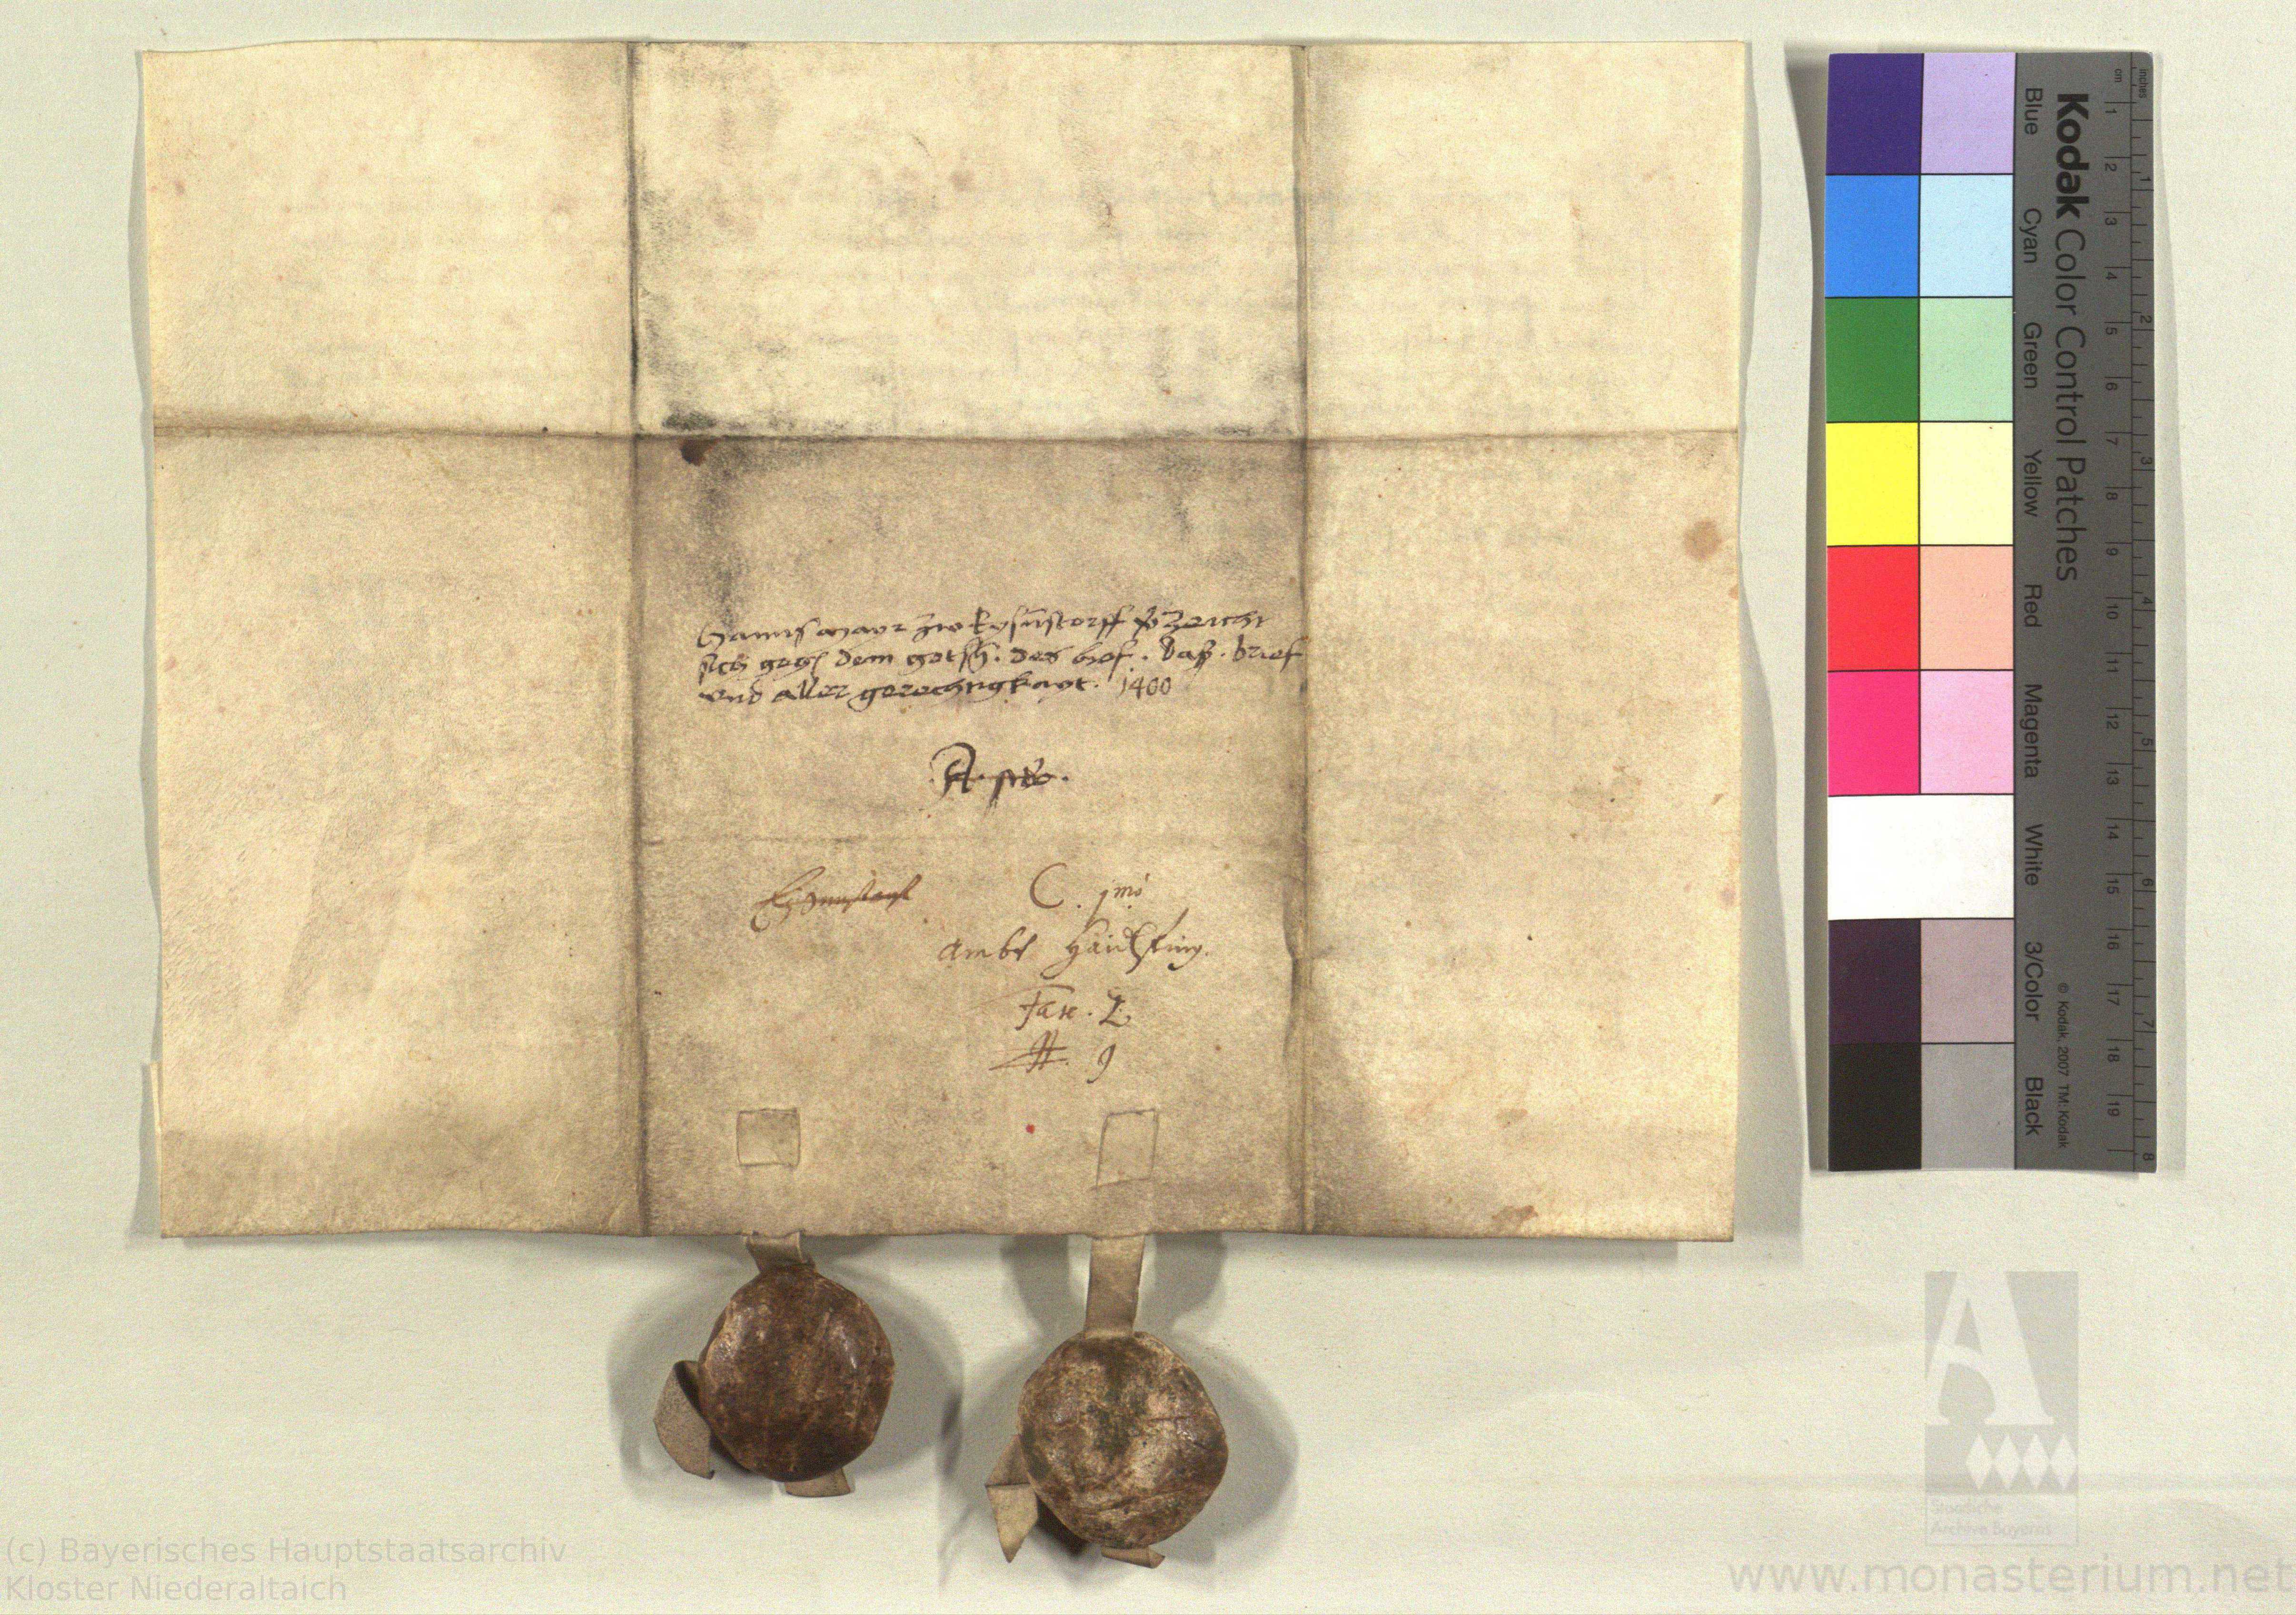 Hanns mayr zw Eysn̄storff v̄zeicht
sich gegn̄ dem gotsh̄. des hof. daß. brief
vnd aller gerechtigkayt. 1400
C. jmo
Ambt Häidlfing.
Fasc. L
#. 9
Kodak Color Control Patches
Blue Cyan Green Yellow Red Magenta White 3/Color Black
© Kodak, 2007 TM: Kodak
cm 1 2 3 4 5 6 7 8 9 10 11 12 13 14 15 16 17 18 19
inches 1 2 3 4 5 6 7 8
Staatliche
Archive Bayerns
(c) Bayerisches Hauptstaatsarchiv
Kloster Niederaltaich
www.monasterium.net